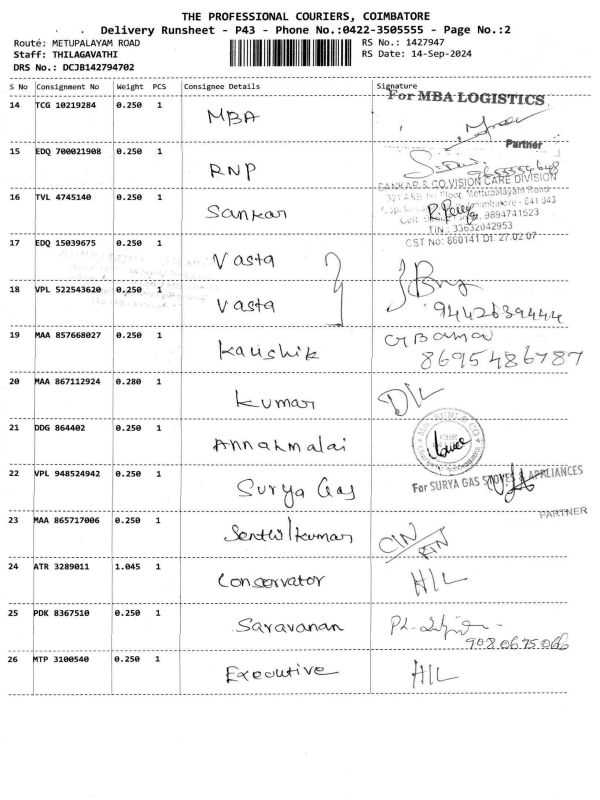 THE PROFESSIONAL COURIERS, COIMBATORE
Delivery Runsheet - P43 - Phone No.:0422-3505555 - Page No.:2
Route: METUPALAYAM ROAD RS No.: 1427947
Staff: THILAGAVATHI RS Date: 14-Sep-2024
DRS No.: DCJB142794702
S No Consignment No Weight PCS Consignee Details Signature
For MBA LOGISTICS
14 TCG 10219284 0.250 1 MBA
Partner
15 EDQ 700021908 0.250 1 RNP
SANKAR & CO VISION CARE DIVISION
16 TVL 4745140 0.250 1 Sankar
9894741523
TIN : 33632042953
CST No: 860141 Dt. 27.02.07
17 EDQ 15039675 0.250 1 Vasta
18 VPL 522543620 0.250 1 Vasta
9442639444
19 MAA 857668027 0.250 1 Kaushik
8695486787
20 MAA 867112924 0.280 1 Kumar D/L
21 DDG 864402 0.250 1 Annahmalai
22 VPL 948524942 0.250 1 Surya Gas
For SURYA GAS STOVES & APPLIANCES
PARTNER
23 MAA 865717006 0.250 1 Senthilkumar
24 ATR 3289011 1.045 1 Conservator H/L
25 PDK 8367510 0.250 1 Saravanan
9080675066
26 MTP 3100540 0.250 1 Executive H/L